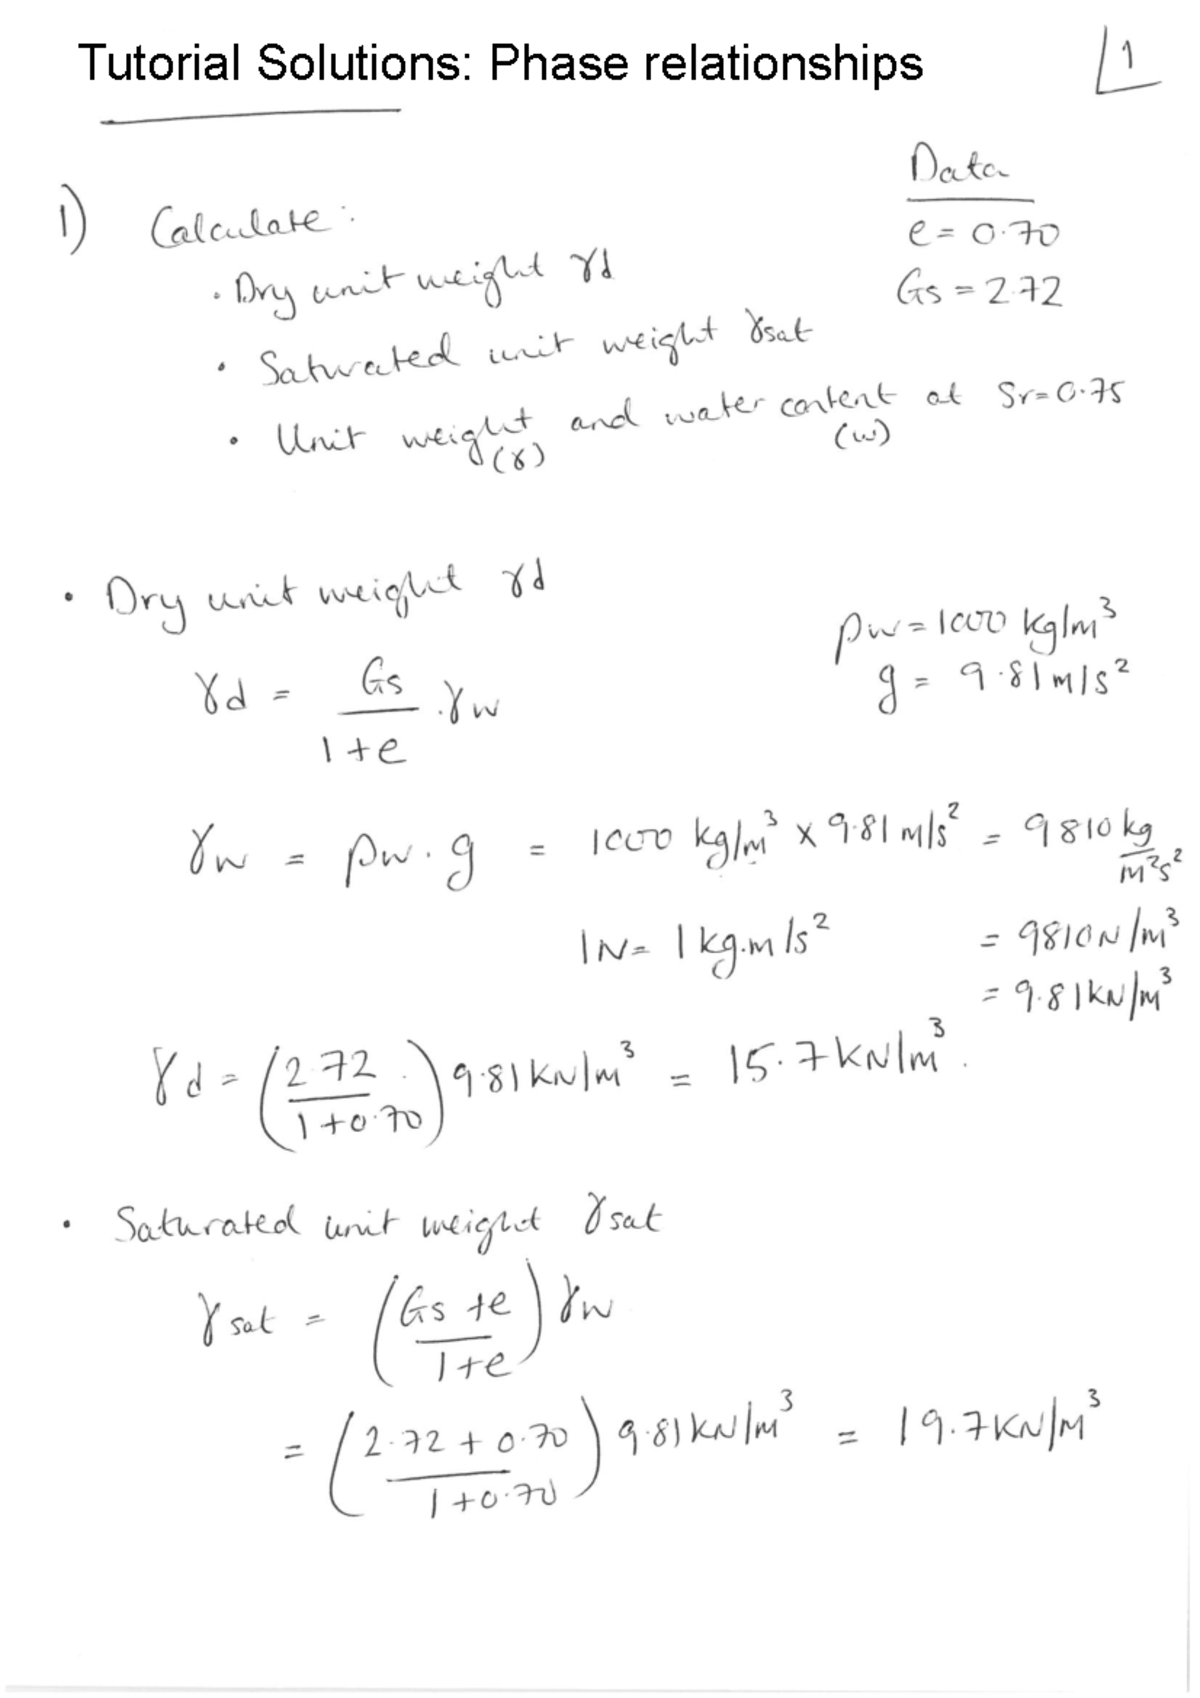 Tutorial Solutions: Phase relationships
1
Data
1) Calculate:
e = 0.70
• Dry unit weight γd
Gs = 2.72
• Saturated unit weight γsat
• Unit weight and water content at Sr = 0.75
(γ) (w)
• Dry unit weight γd
ρw = 1000 kg/m³
γd = Gs/1+e . γw
g = 9.81 m/s²
γw = ρw . g = 1000 kg/m³ × 9.81 m/s² = 9810 kg/m²s²
1N = 1 kg.m/s² = 9810N/m³
= 9.81kN/m³
γd = (2.72/1+0.70) 9.81kN/m³ = 15.7kN/m³.
• Saturated unit weight γsat
γsat = (Gs+e/1+e) γw
= (2.72 + 0.70/1+0.70) 9.81kN/m³ = 19.7kN/m³